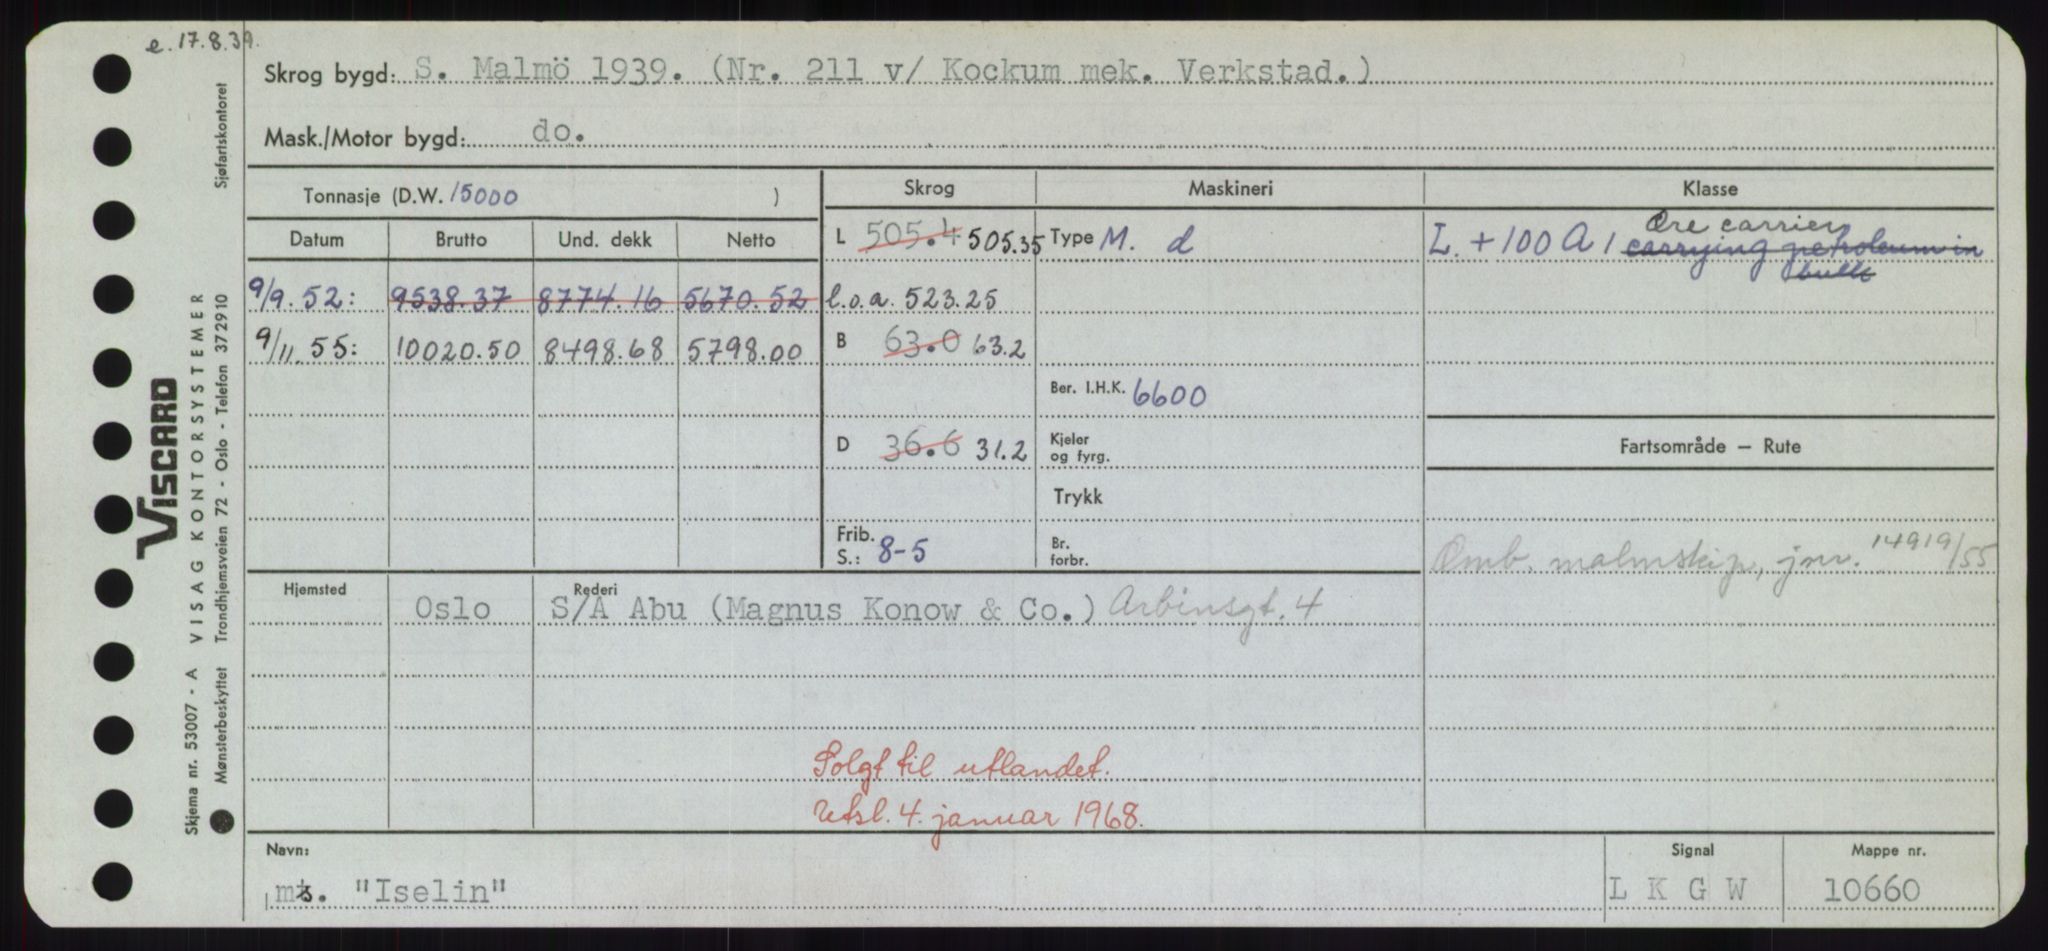 e. 17.8.39.
Skrog bygd: S. Malmö 1939. (Nr. 211 v/ Kockum mek. Verkstad.)
Mask./Motor bygd: do.
Tonnasje (D.W. 15000 )
Skrog
Maskineri
Klasse
Datum Brutto Und. dekk Netto
9/9. 52: 9538.37 8774.16 5670.52
9/11. 55: 10020.50 8498.68 5798.00
L 505.4 505.35
l.o.a. 523.25
B 63.0 63.2
D 36.6 31.2
Frib.
S.: 8-5
Type M. d
Ber. I.H.K. 6600
Kjeler
og fyrg.
Trykk
Br.
forbr.
Ore carrier
L. + 100 A 1 carrying petroleum in
bulk
Fartsområde — Rute
Omb. malmskip, jnr. 14919/55
Hjemsted
Rederi
Oslo S/A Abu (Magnus Konow & Co.) Arbinsgt. 4
Solgt til utlandet.
Utsl. 4. januar 1968.
Navn:
ms. "Iselin"
Signal
L K G W
Mappe nr.
10660
VISCARD
Skjema nr. 53007 - A VISAG KONTORSYSTEMER
Mønsterbeskyttet Trondhjemsveien 72 - Oslo - Telefon 372910 Sjøfartskontoret